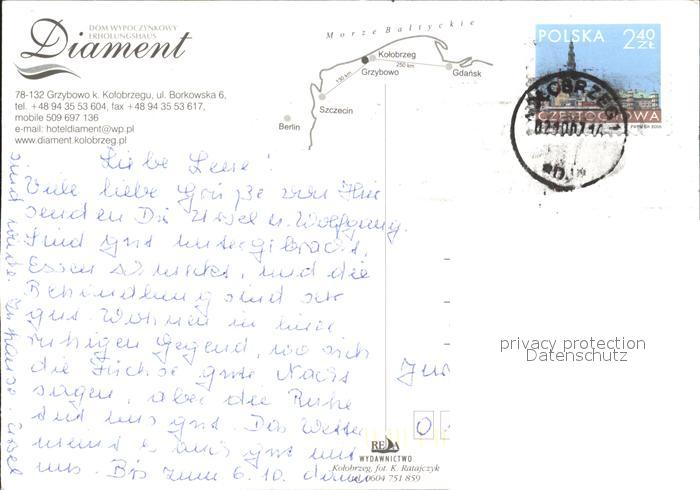 DOM WYPOCZYNKOWY
ERHOLUNGSHAUS
Diament
78-132 Grzybowo k. Kołobrzegu, ul. Borkowska 6,
tel. +48 94 35 53 604, fax +48 94 35 53 617,
mobile 509 697 136
e-mail: hoteldiament@wp.pl
www.diament.kolobrzeg.pl
Morze Bałtyckie
Kołobrzeg
Grzybowo
250 km
Gdańsk
130 km
Szczecin
Berlin
POLSKA 2 40 ZŁ
CZĘSTOCHOWA
PWPW SA 2005
KOŁOBRZEG 1
Liebe Leni!
Viele liebe Grüße von hier
senden Dir Ursel u. Wolfgang.
Sind gut untergebracht,
Essen schmeckt, und die
Behandlung sind sehr
gut. Wohnen in einer
ruhigen Gegend, wo sich
die Füchse gute Nacht
sagen, aber die Ruhe
tut uns gut. Das Wetter
meint es auch gut mit
uns. Bis zum 6.10. dann
sind wir wieder zu Hause
Ursel
privacy protection
Datenschutz
REDA
WYDAWNICTWO
Kołobrzeg, fot. K. Ratajczyk
tel. 0604 751 859